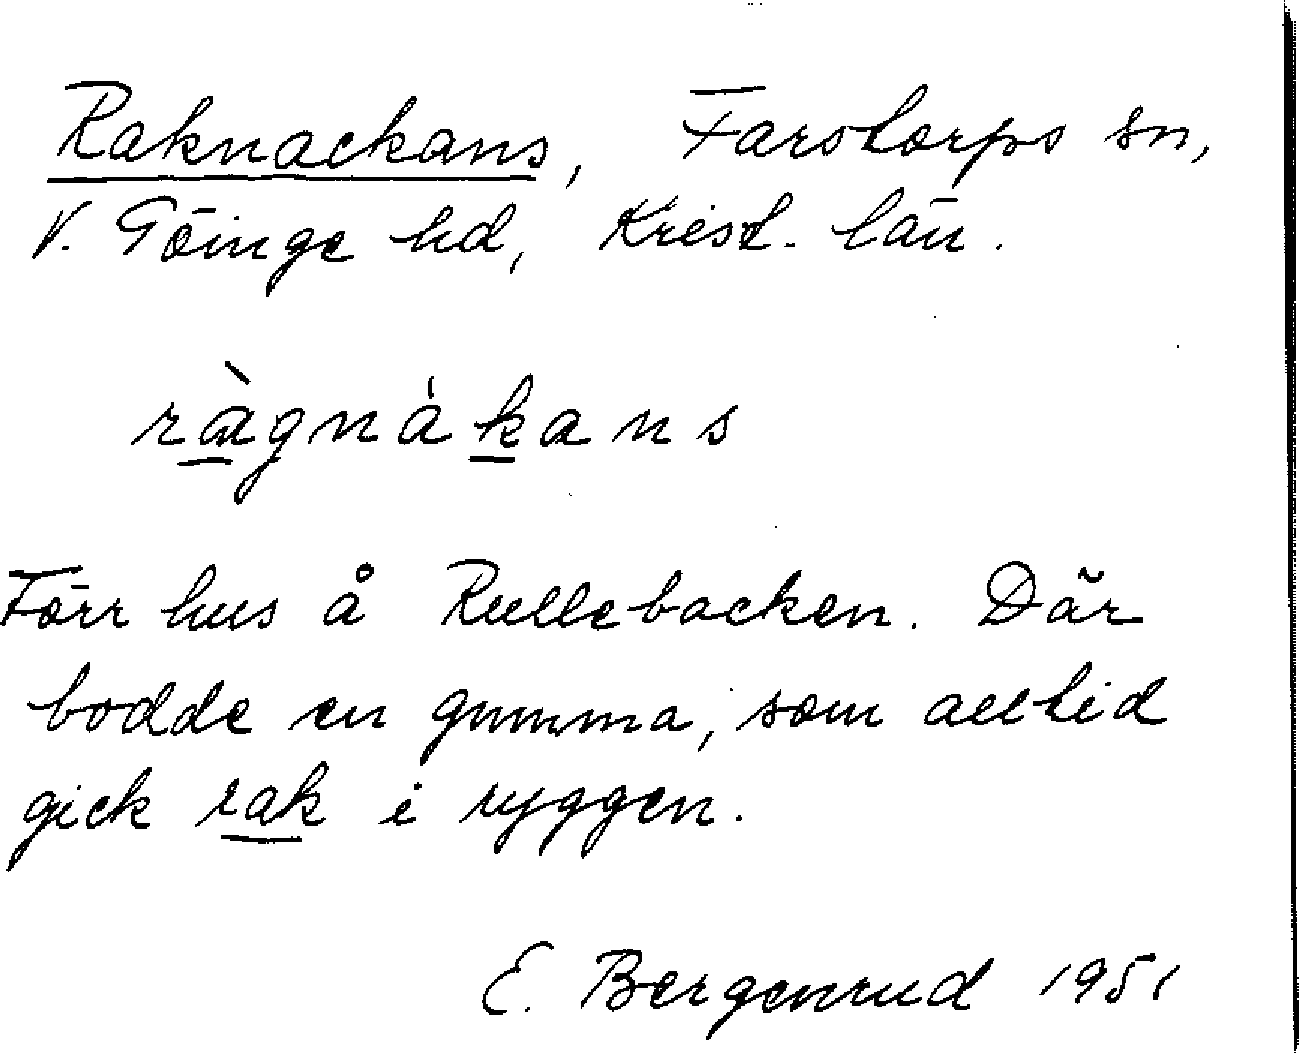 Raknackans, Farstorps sn,
V. Göinge hd, Krist. län.
ràgnákans
Förr hus å Rullebacken. Där
bodde en gumma, som alltid
gick rak i ryggen.
E. Bergenrud 1951